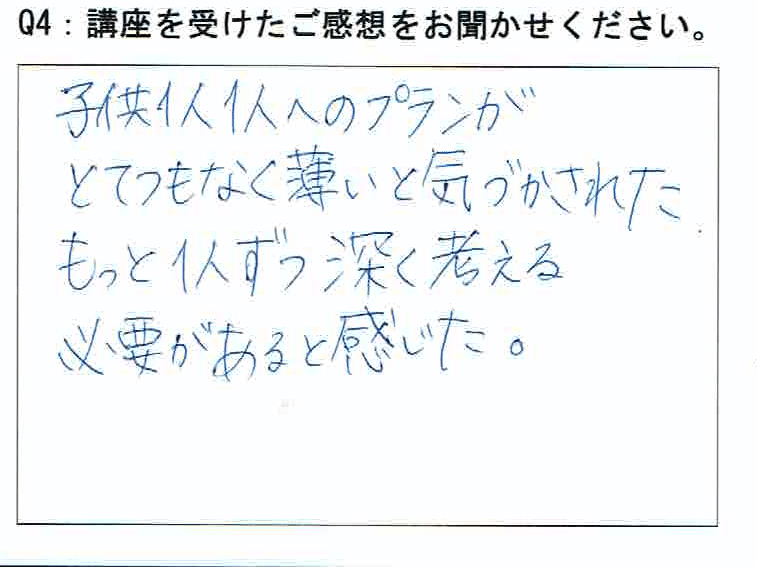 Q4：講座を受けたご感想をお聞かせください。
子供1人1人へのプランが
とてつもなく薄いと気づかされた.
もっと1人ずつ深く考える
必要があると感じた。